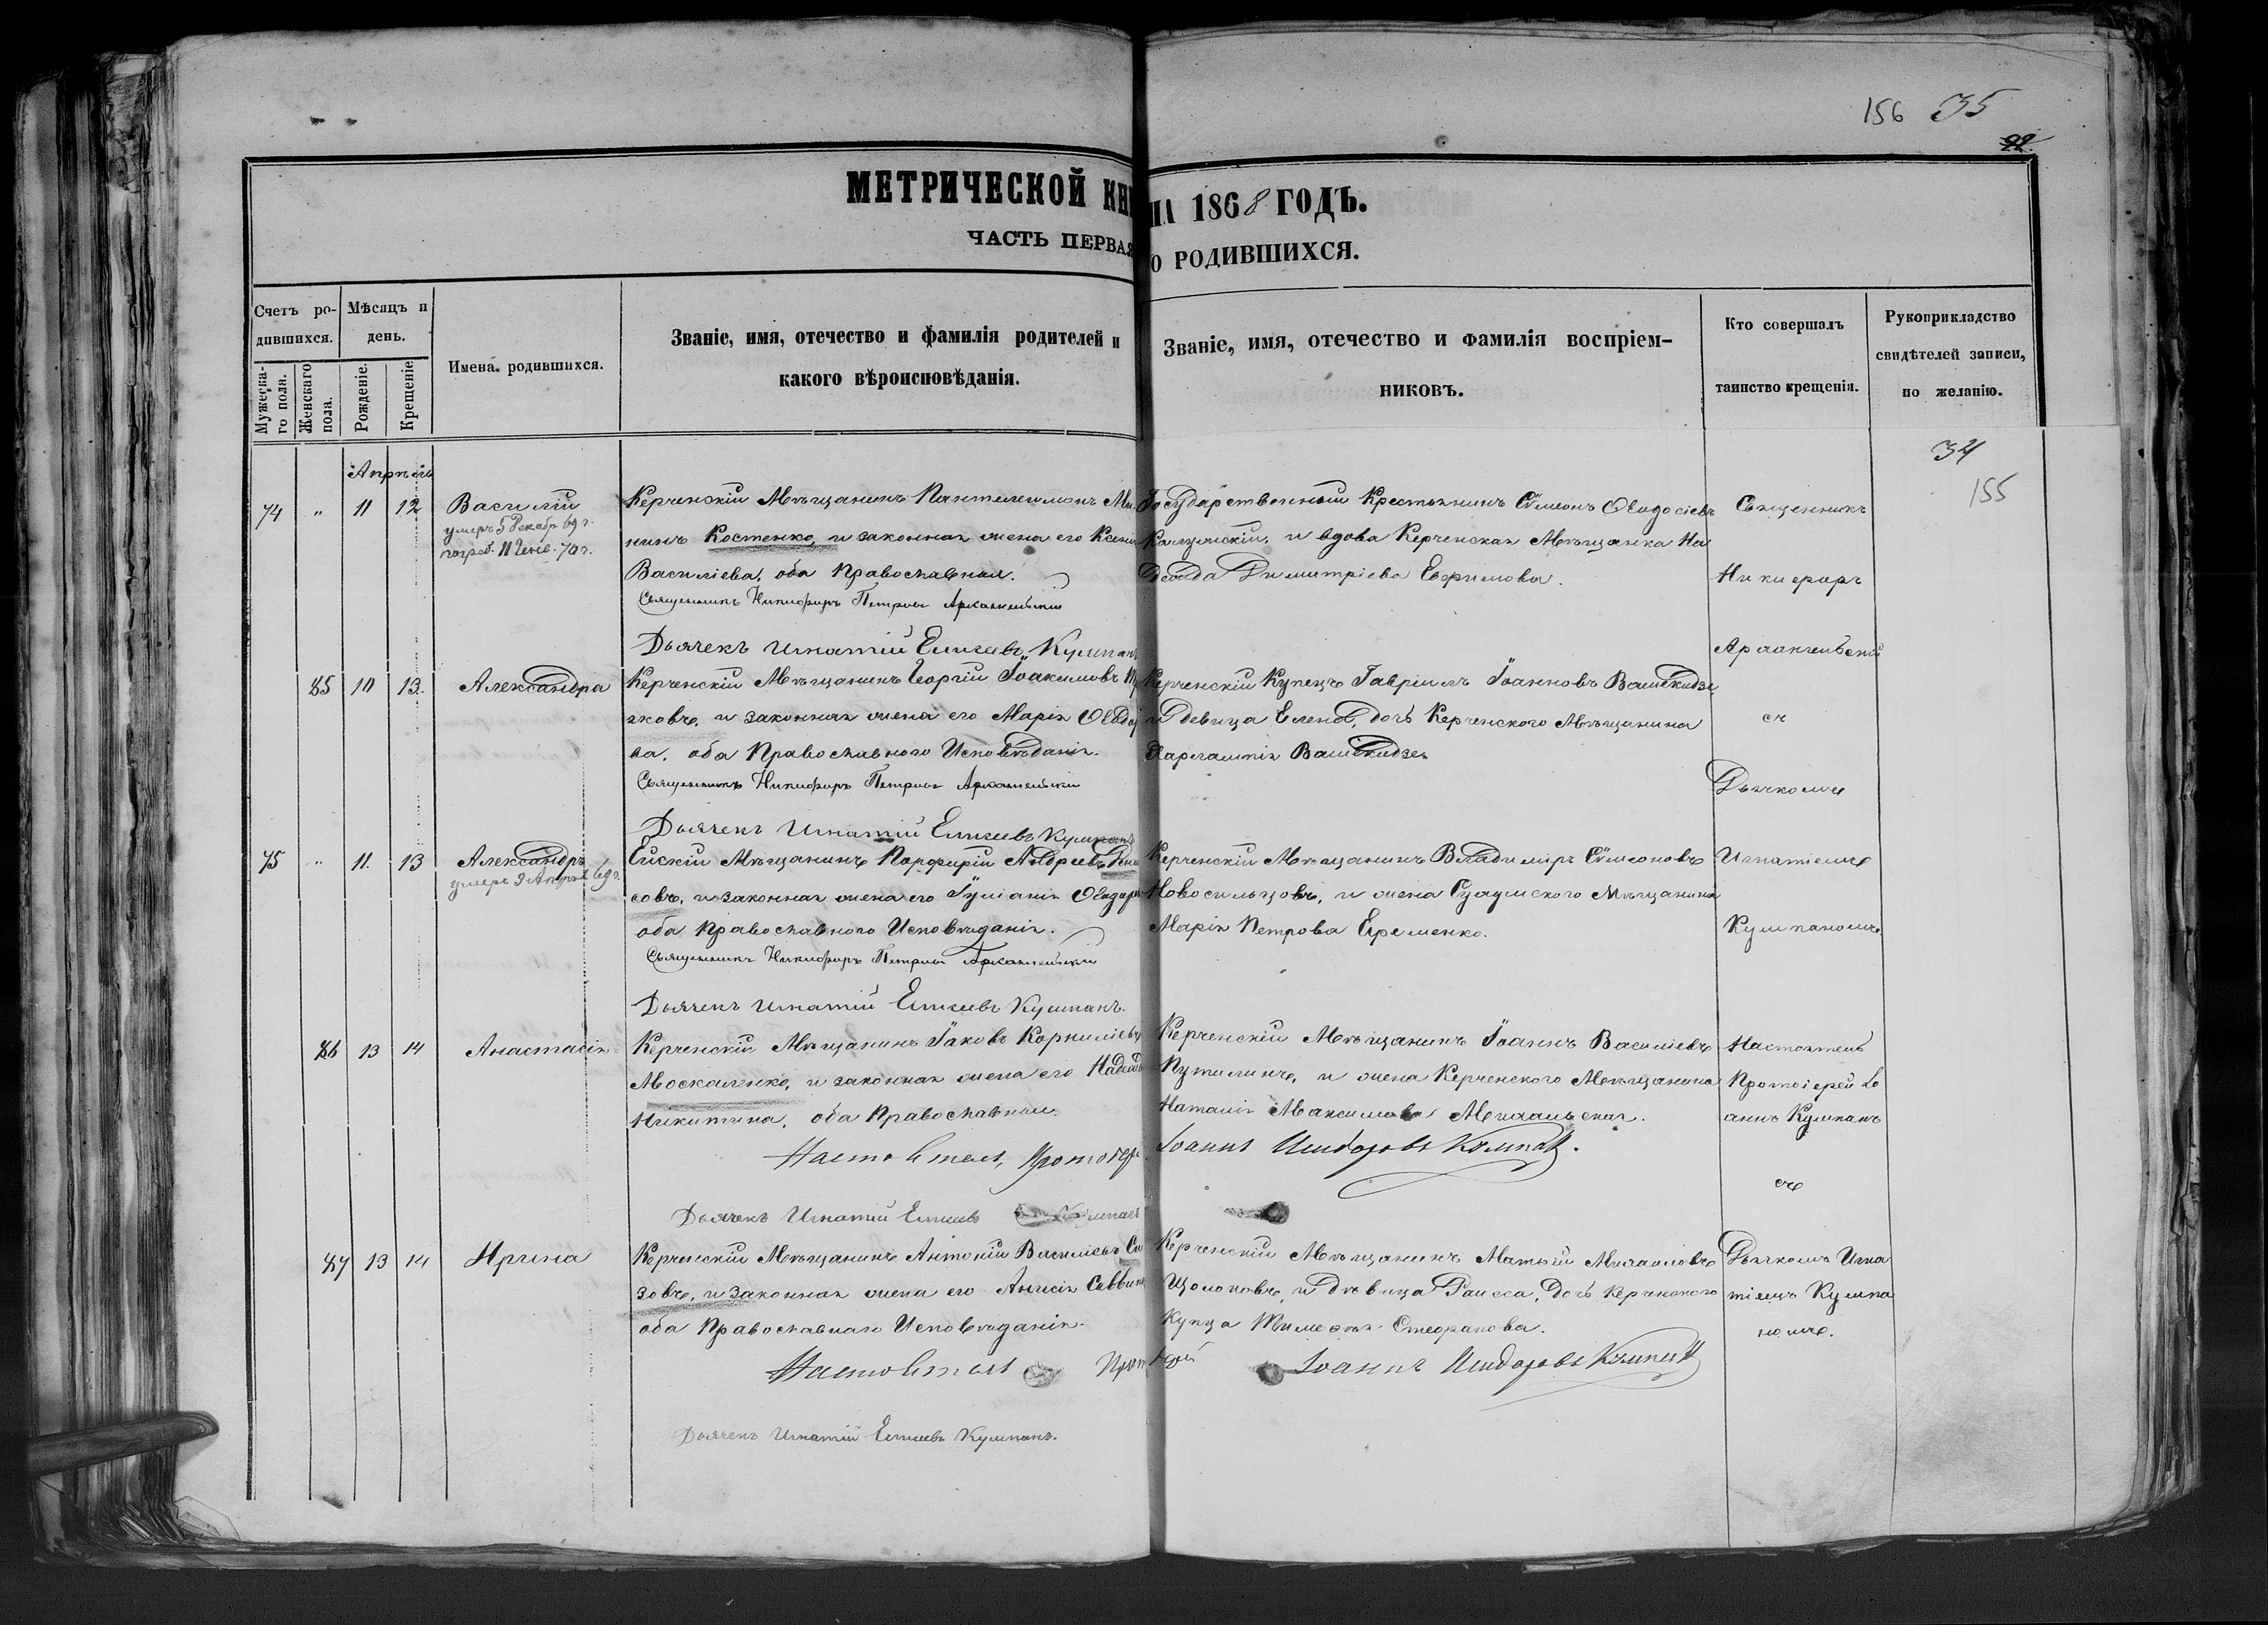 156 35
22.
МЕТРИЧЕСКОЙ КНИ
НА 1868 ГОДЪ.
ЧАСТЬ ПЕРВАЯ
О РОДИВШИХСЯ.
Счетъ ро-
дившихся.
Мужеска-
го пола.
Женскаго
пола.
Мѣсяцъ и
день.
Рожденіе.
Крещеніе.
Имена родившихся.
Званіе, имя, отечество и фамилія родителей и
какого вѣроисповѣданія.
Званіе, имя, отечество и фамилія воспріем-
никовъ.
Кто совершалъ
таинство крещенія.
Рукоприкладство
свидѣтелей записи,
по желанію.
34
155
Апрѣль
74 " 11 12 Василій
умеръ 5 Декабр 69 г.
погреб. 11 Генв. 70 г.
Керченскій Мѣщанинъ Пантелеимонъ Ми
нинъ Костенко, и законная жена его Ксенія
Василіева, оба Православныя.
Священникъ Никифоръ Петровъ Архангельскій
Дьячекъ Игнатій Елисеевъ Кумпанъ
Государственный Крестьянинъ Сѵмеонъ Ѳеодосіевъ
и вдова Керченская Мѣщанка На
Димитріева Ефимова.
Священникъ
Никифоръ
Архангельскій
85 10 13. Александра
Керченскій Мѣщанинъ Георгій Іоакимовъ
и законная жена его Марія
ва, оба Православнаго Исповѣданія.
Священникъ Никифоръ Петровъ Архангельскій
Дьячекъ Игнатій Елисеевъ Кумпанъ
Керченскій Купецъ Гавріилъ Іоанновъ
и Девица Елена, дочь Керченского Мѣщанина
съ
Дьячкомъ
75 " 11. 13 Александръ
умеръ 9 Апрѣл 69 г.
Ейскій Мѣщанинъ Порфирій Андреевъ
совъ, и законная жена его Іуліанія
оба Православного Исповѣданія.
Священникъ Никифоръ Петровъ Архангельскій
Дьячекъ Игнатій Елисеевъ Кумпанъ.
Керченскій Мѣщанинъ Владиміръ Сѵмеоновъ
Новосильцовъ, и жена Мѣщанина
Марія Петрова Еременко.
Игнатіемъ
Кумпаномъ.
86 13 14 Анастасія
Керченскій Мѣщанинъ Іаковъ Корниліевъ
Москаленко, и законная жена его Надежда
Никитина, оба Православныя.
Настоятель, Протоіер
Дьячекъ Игнатій Елисеевъ Кумпанъ
Керченскій Мѣщанинъ Іоаннъ Василіевъ
Путилинъ, и жена Керченского Мѣщанина
Наталія Максимова
Іоаннъ Исидоровъ Кумпанъ.
Настоятель
Протоіерей Іо
аннъ Кумпанъ
съ
87 13 14 Ирина
Керченскій Мѣщанинъ Антоній Василіевъ
зовъ, и законная жена его Анисія Саввина
оба Православнаго Исповѣданія.
Настоятель Прот
Дьячекъ Игнатій Елисеевъ Кумпанъ.
Керченскій Мѣщанинъ Матѳій Михаиловъ
и Дѣвица Раисса, Дочь Керченского
Купца Тимоѳея Стефанова.
ерей Іоаннъ Исидоровъ Кумпанъ
Дьячкомъ Игна
тіемъ Кумпа
номъ.